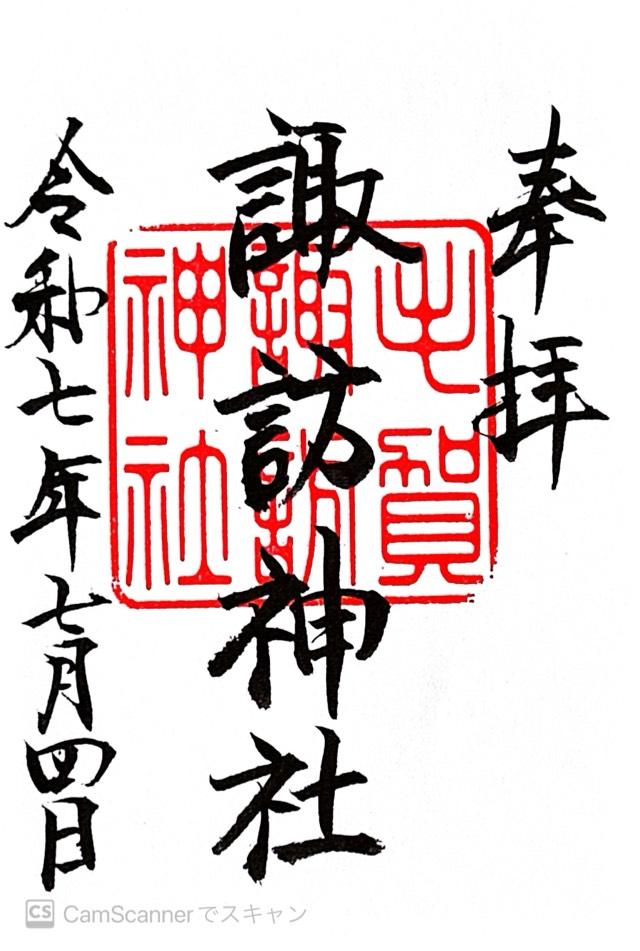 奉拝
諏訪神社
令和七年七月四日
毛賀
諏訪
神社
CS CamScannerでスキャン